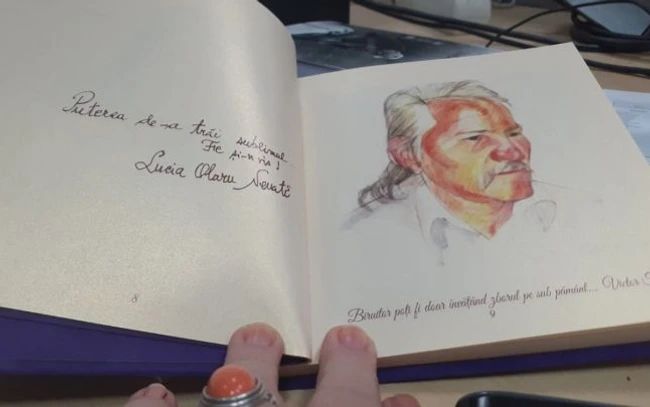 Puterea de-a trăi sublimul
Fie și-n vis!
Lucia Olaru Nenati
8
Biruitor poți fi doar învățând zborul pe sub pământ.... Victor
9